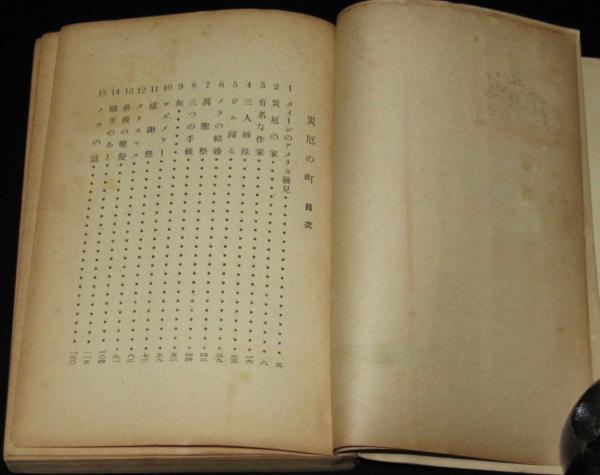 災厄の町 目次
1 クイーンのアメリカ發見 五
2 災厄の家 八
3 有名な作家
4 三人姉妹 一六
5 ジム歸る
6 ノラの結婚 三九
7 萬聖祭 四二
8 三つの手紙 四四
9 灰 五二
10 ロズメリー 五九
11 感謝祭 七二
12 クリスマス 八二
13 最後の晩餐 九一
14 騒ぎのあと 一〇四
15 ノラの話